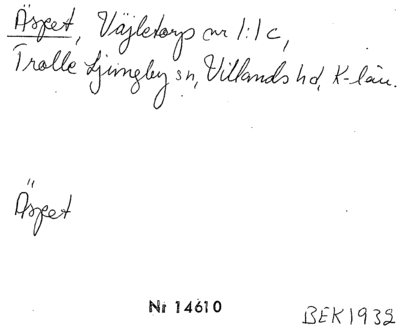 Äspet, Väjletorp nr 1:1 c,
Trolle Ljungby sn, Villands hd, K-län.
Äspet
Nr 14610 BEK1932